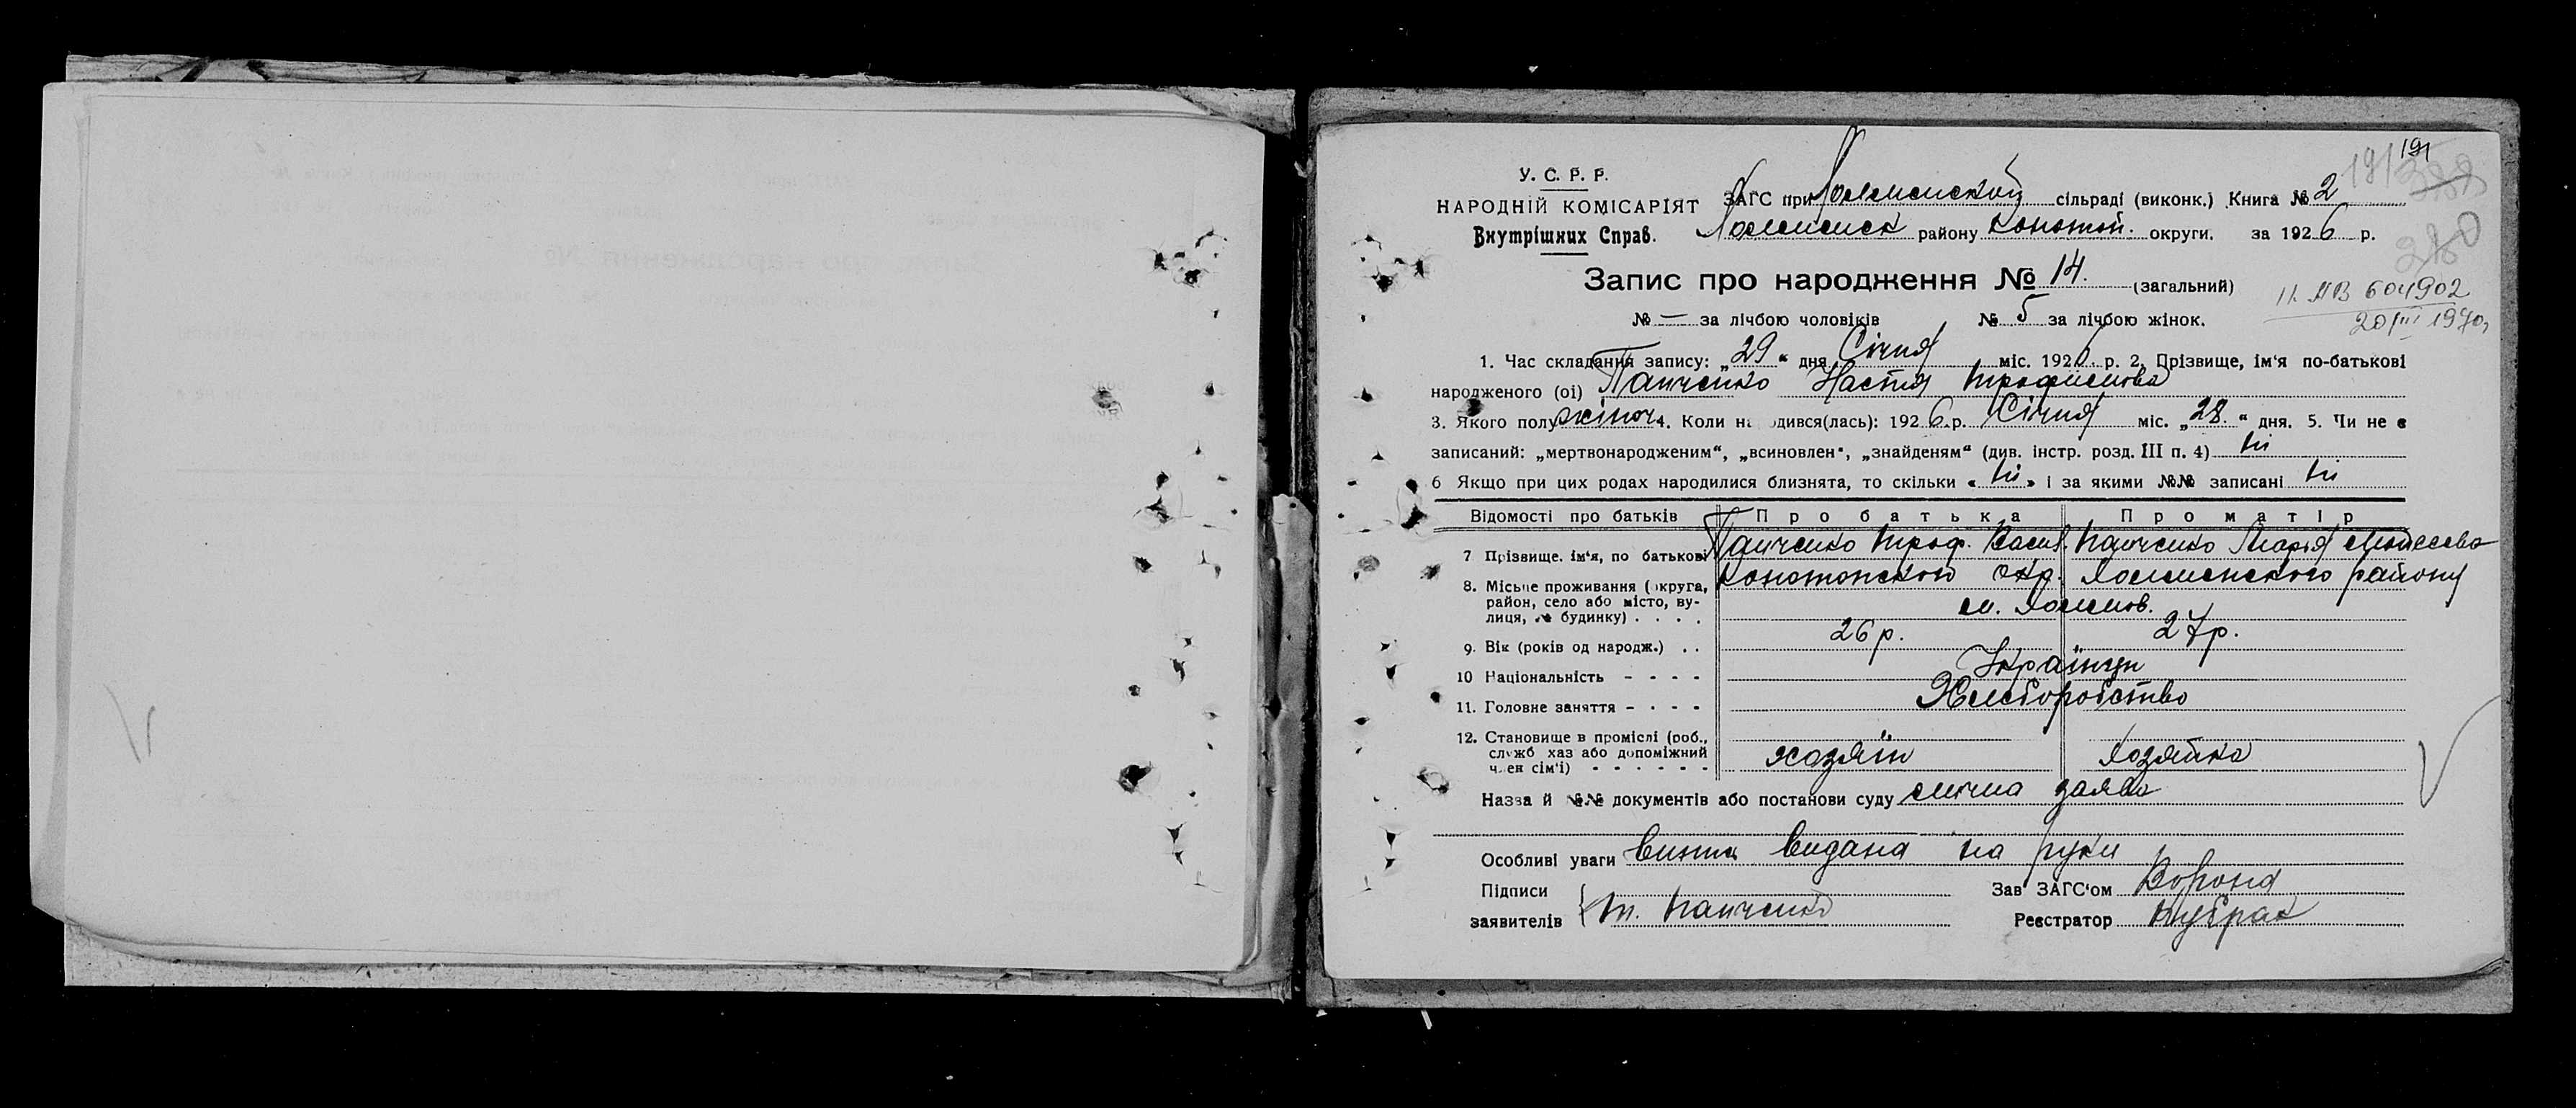 191
191
У. С. Р. Р.
НАРОДНІЙ КОМІСАРІЯТ
Внутрішних Справ.
ЗАГС при Холминской сільраді (виконк.) Книга № 2
Холминск району Конотоп. округи. за 1926 р.
Запис про народження № 14. (загальний)
II АВ 604902
20/III 1970
№ — за лічбою чоловіків № 5 за лічбою жінок.
1. Час складання запису: „29“ дня Січня міс. 1926 р. 2. Прізвище, ім‘я по-батькові
народженого (ої) Панченко Настя Трофимова
3. Якого полу жіноч 4. Коли на одився(лась): 1926 р. Січня міс. „28.“ дня. 5. Чи не є
записаний: „мертвонародженим“, „всиновлен“, „знайденям“ (див. інстр. розд. III п. 4) ні
6 Якщо при цих родах народилися близнята, то скільки „ні“ і за якими №№ записані ні
Відомості про батьків Про батька Про матір
7 Прізвище. ім‘я, по батькові Панченко Троф. Васил. Панченко Марья
8. Місьце проживання (округа, район, село або місто, вулиця, № будинку) Конотопского окр. Холминского району
м. Холмов.
9. Вік (років од народж.) 26 р. 27 р.
10 Національність - - - - Українці
11. Головне заняття - - - - Хлеборобство
12. Становище в проміслі (роб., служб хаз або допоміжний член сім‘ї) - - - - - - хозяїн хозяйка
Назва й №№ документів або постанови суду смична заява
Особливі уваги випис видана на руки
Підписи
заявителів Т. Панченко
Зав ЗАГС‘ом Ворона
Реєстратор